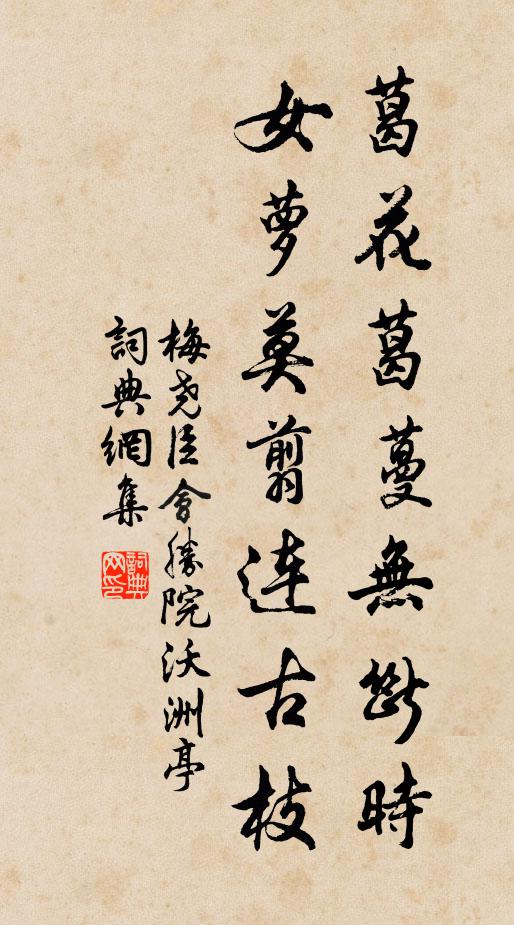 葛花葛蔓無斷時
女萝莫翦连古枝
梅尧臣會勝院沃洲亭
詞典網集
詞典
网印